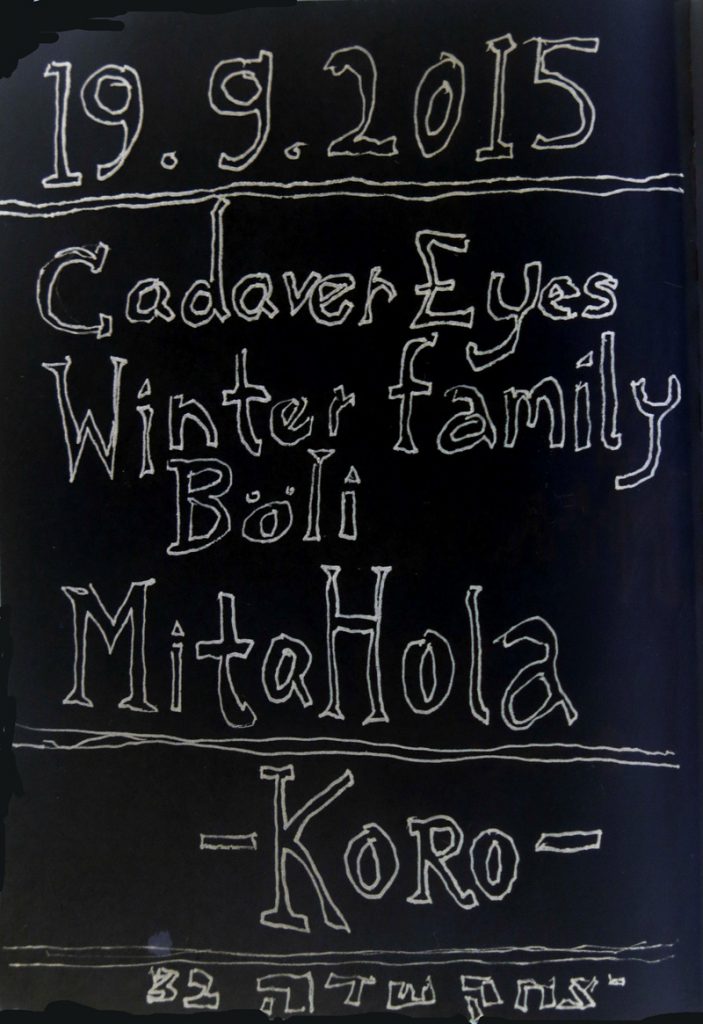 19.9.2015
Cadaver Eyes
Winter family
Böli
MitaHola
-KORO-
יצחק שדה 32